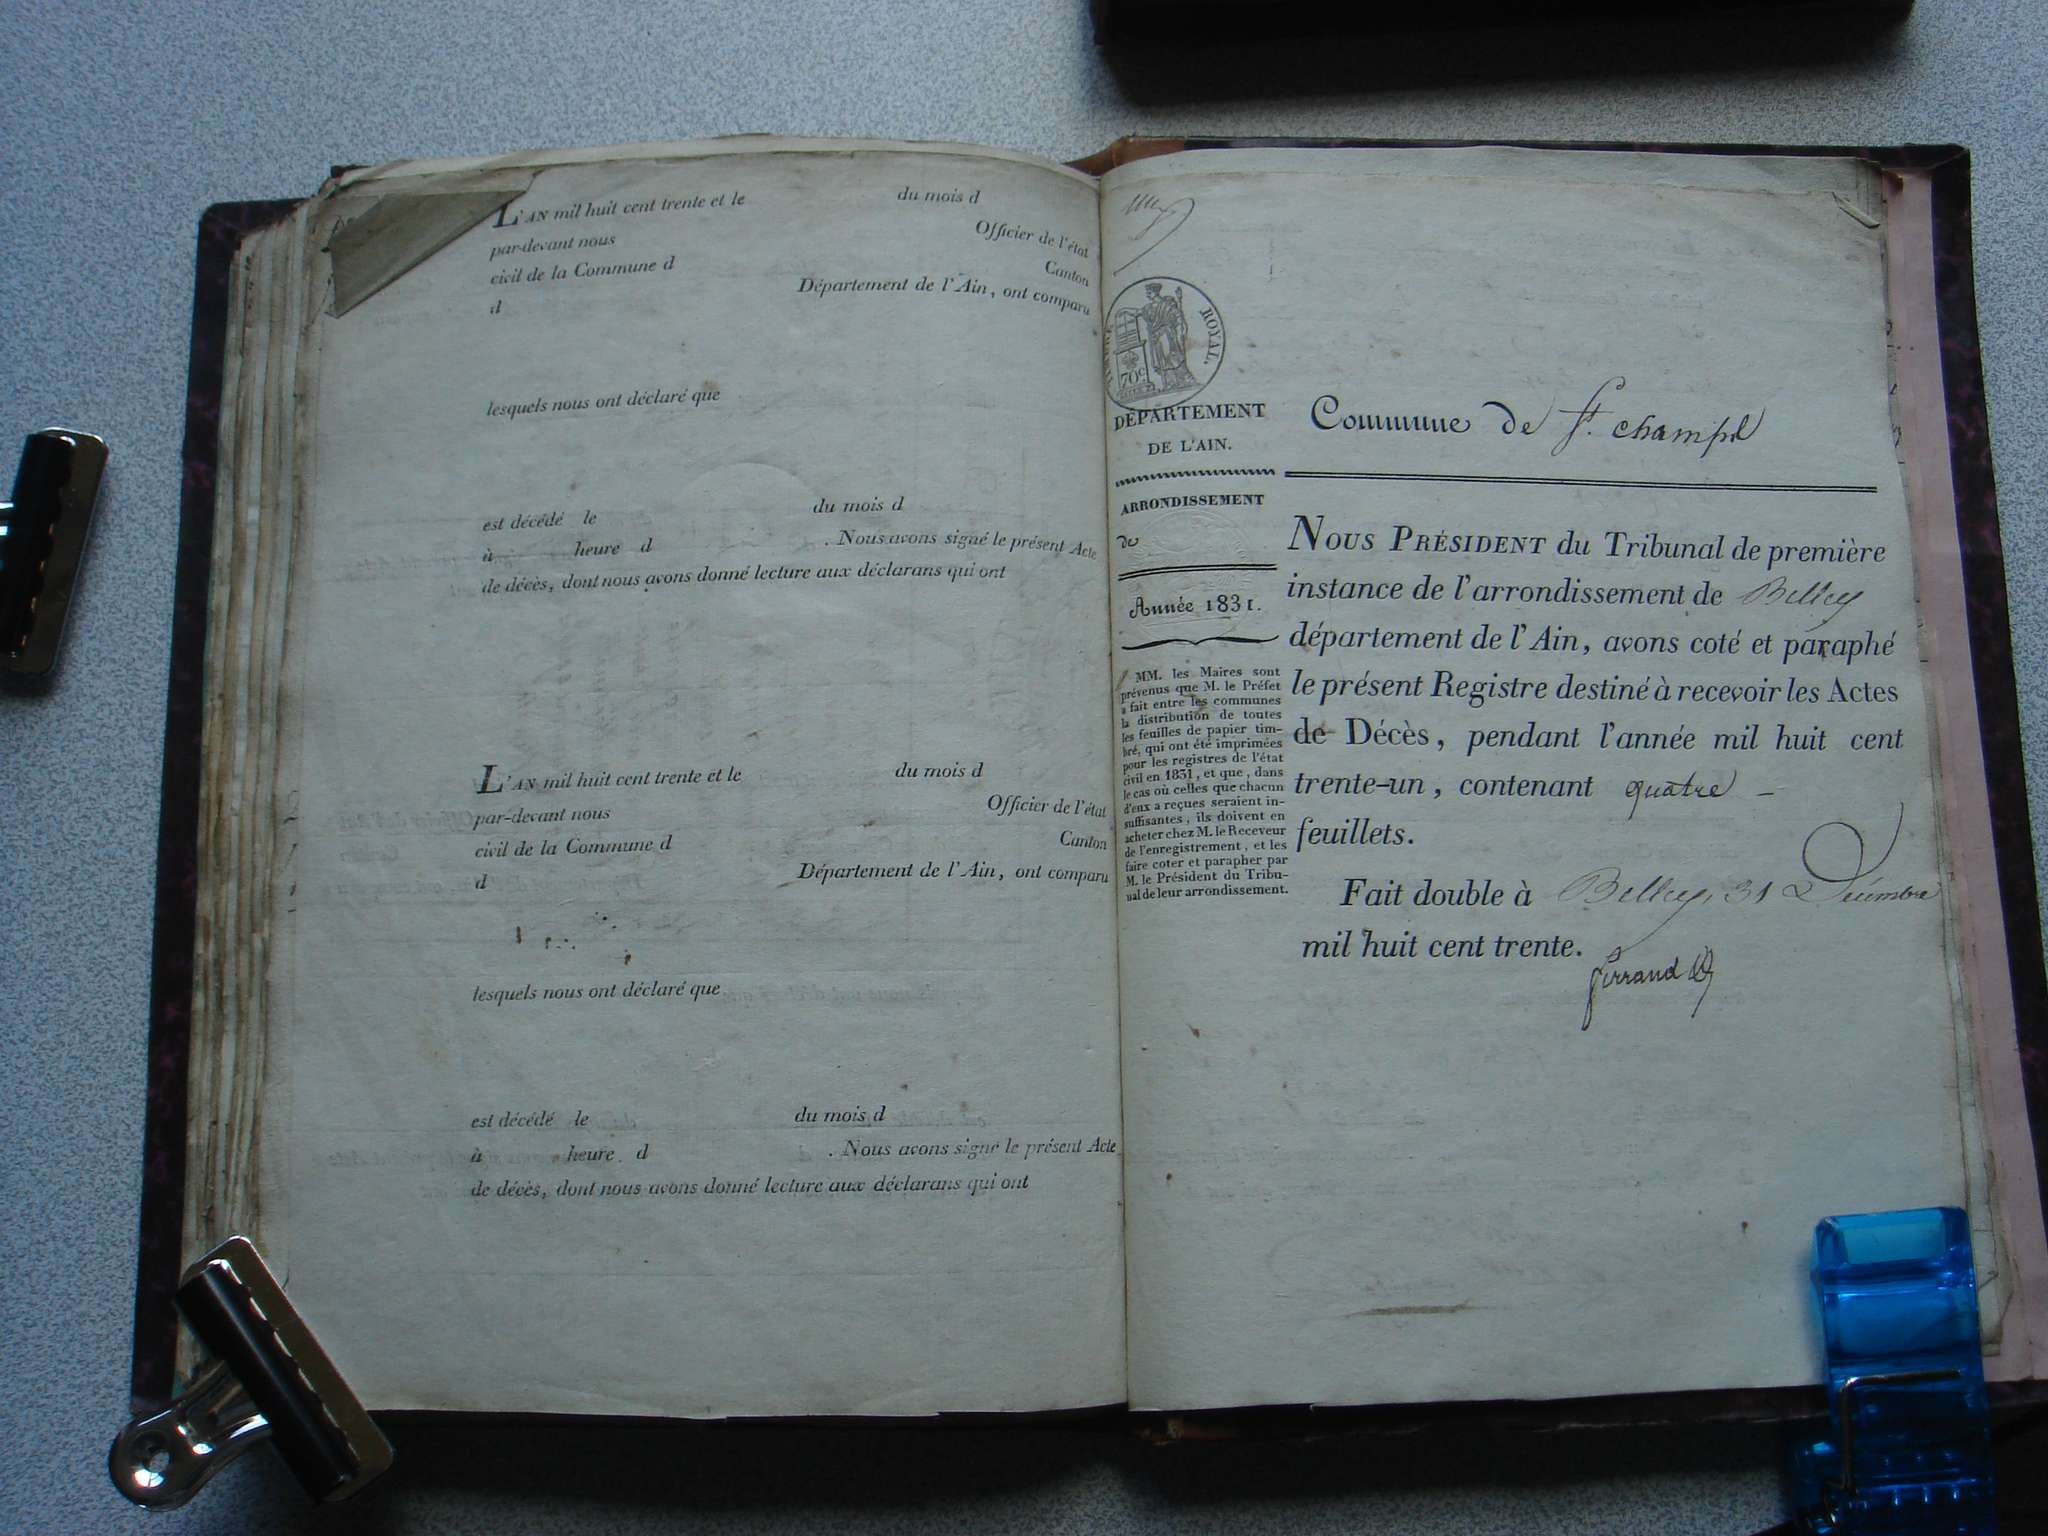 L'AN mil huit cent trente et le du mois d
par-devant nous Officier de l'état
civil de la Commune d Canton
d Département de l'Ain, ont comparu
lesquels nous ont déclaré que
est décédé le du mois d
à heure d . Nous avons signé le présent Acte
de décès, dont nous avons donné lecture aux déclarans qui ont
L'AN mil huit cent trente et le du mois d
par-devant nous Officier de l'état
civil de la Commune d Canton
d Département de l'Ain, ont comparu
lesquels nous ont déclaré que
est décédé le du mois d
à heure d . Nous avons signé le présent Acte
de décès, dont nous avons donné lecture aux déclarans qui ont
ROYAL.
70c
DÉPARTEMENT
DE L'AIN.
ARRONDISSEMENT
de
Année 1831.
MM. les Maires sont
prévenus que M. le Préfet
a fait entre les communes
la distribution de toutes
les feuilles de papier tim-
bré, qui ont été imprimées
pour les registres de l'état
civil en 1831, et que, dans
le cas où celles que chacun
d'eux a reçues seraient in-
suffisantes, ils doivent en
acheter chez M. le Receveur
de l'enregistrement, et les
faire coter et parapher par
M. le Président du Tribu-
nal de leur arrondissement.
Commune de St. champ
Nous Président du Tribunal de première
instance de l'arrondissement de Belley
département de l'Ain, avons coté et paraphé
le présent Registre destiné à recevoir les Actes
de Décès, pendant l'année mil huit cent
trente-un, contenant quatre
feuillets.
Fait double à Belley, 31 Décembre
mil huit cent trente.
ferrand